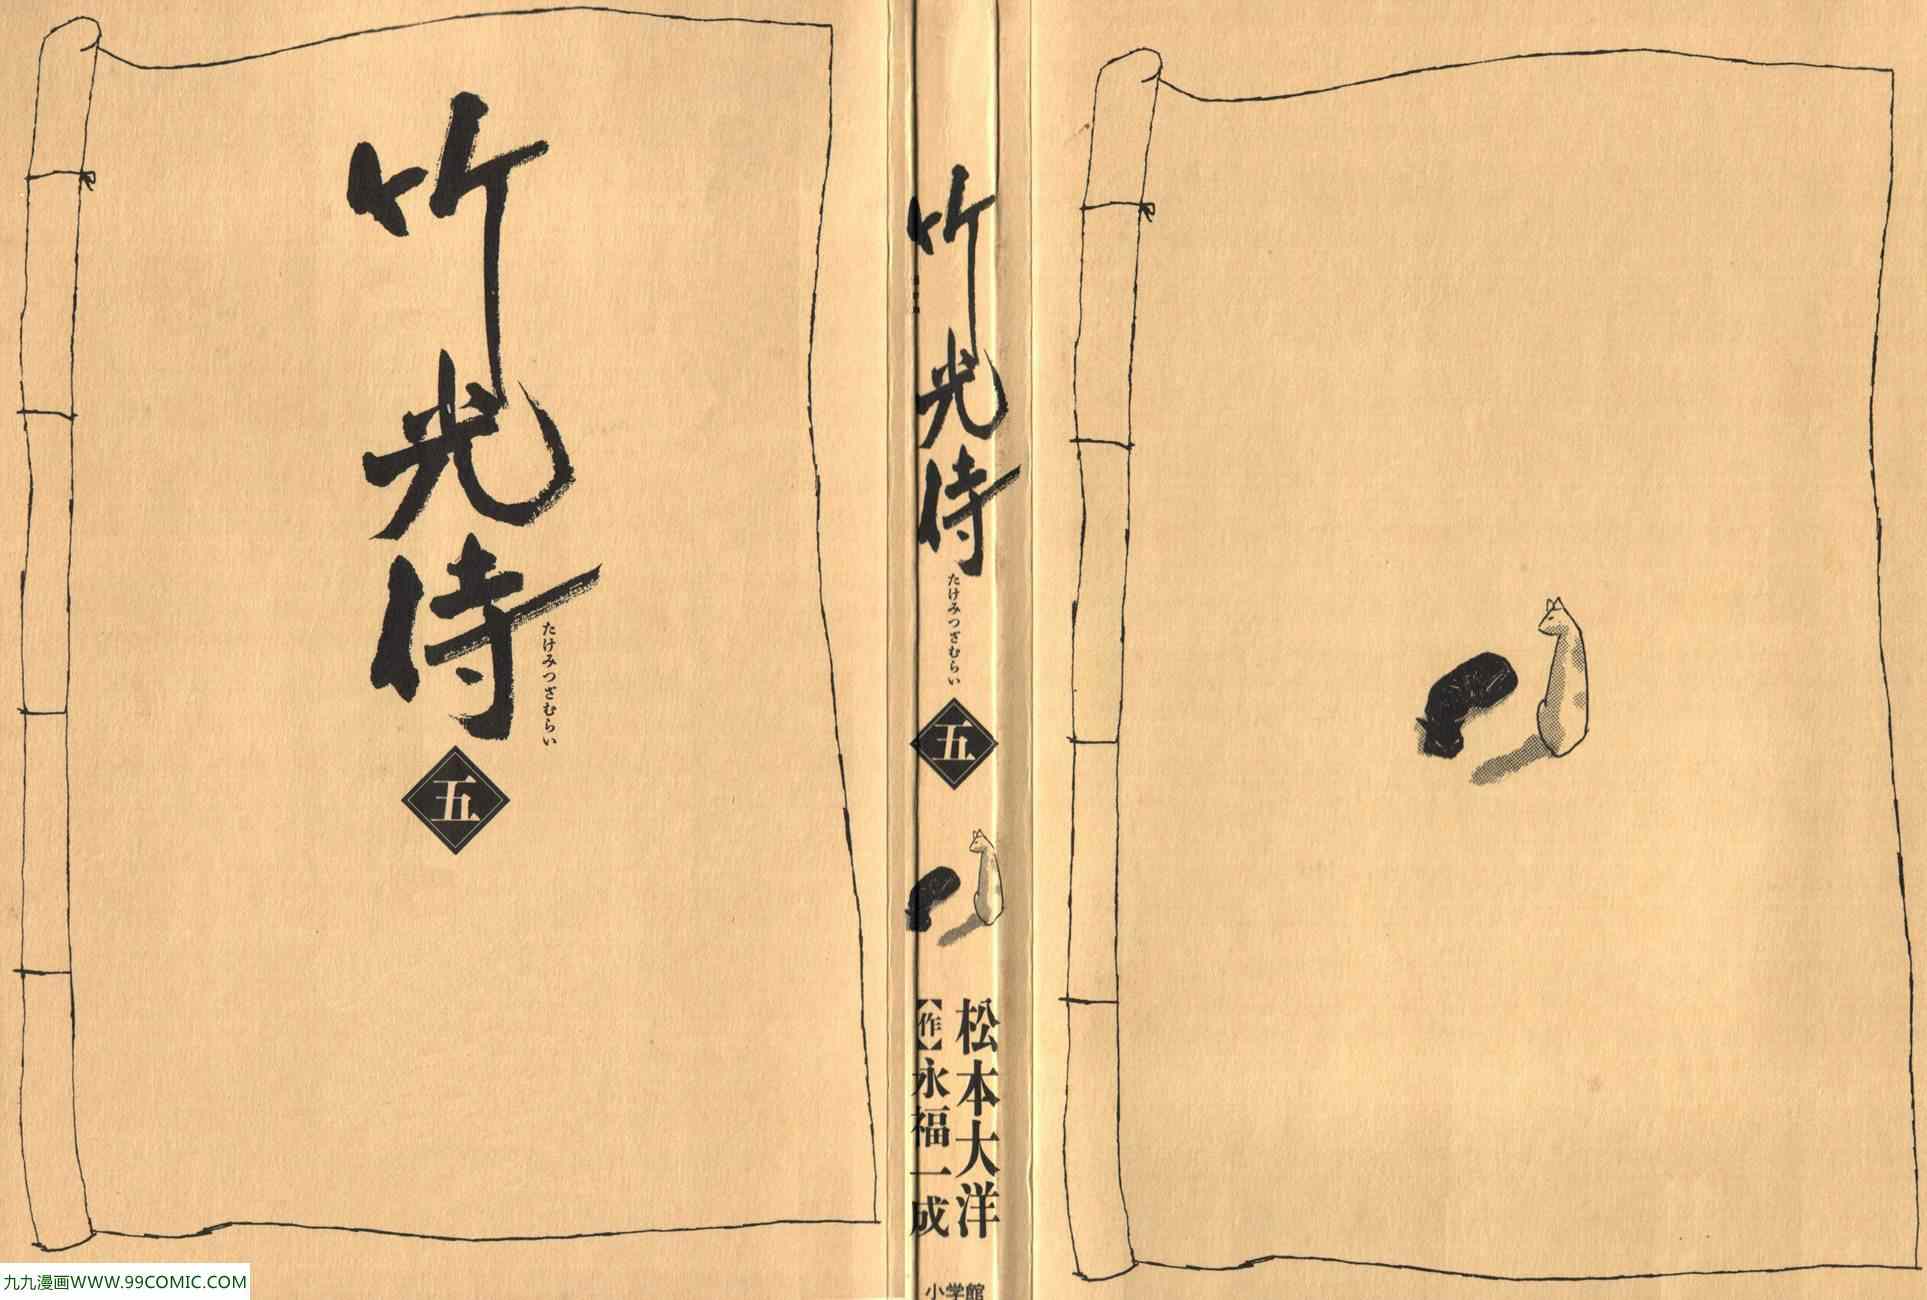 竹光侍
たけみつざむらい
五
竹光侍
たけみつざむらい
五
松本大洋
【作】永福一成
小学館
九九漫画WWW.99COMIC.COM